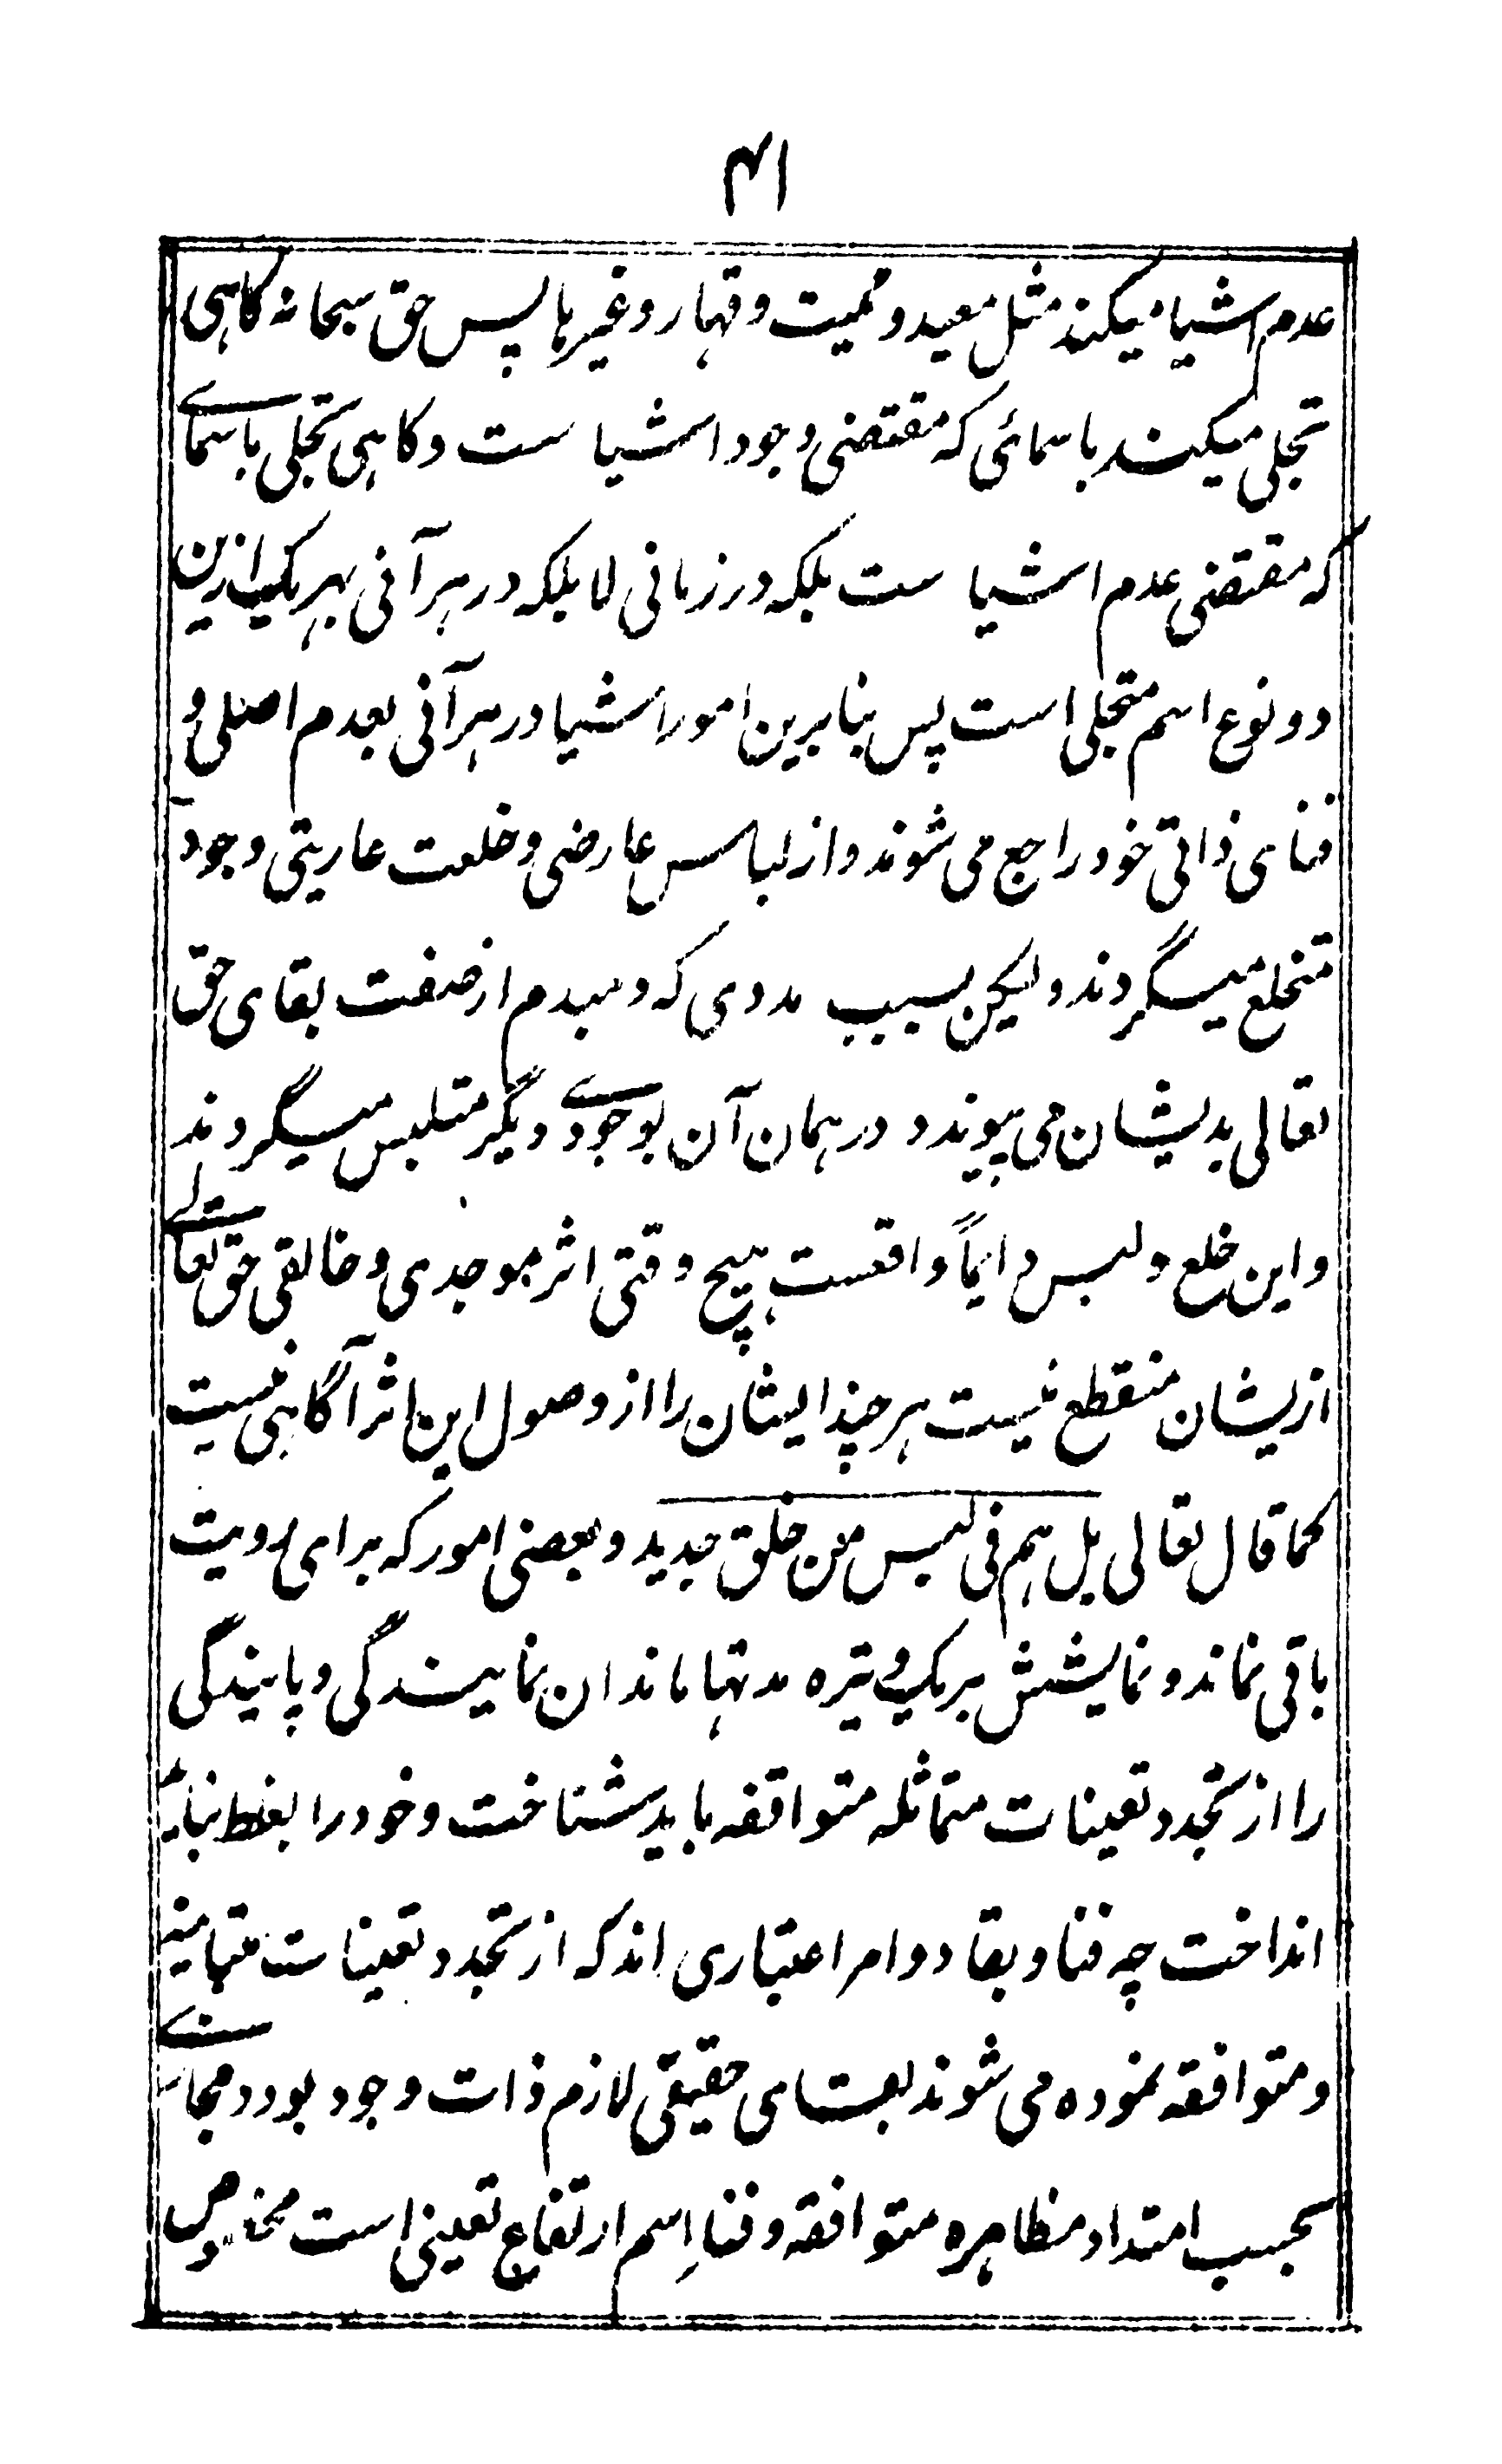 ۴۱
عدم اشیا میکند مثل معید و ممیت و قهار و غیرها پس حق سبحانه گاهی
تجلی میکند باسمائی که مقتضی وجود اشیا ست و گاهی تجلی باسمای
که مقتضی عدم اشیا ست بلکه در زمانی لا بلکه در هر آنی بهر یک ازین
دو نوع اسم متجلی است پس بنابرین امور اشیا در هر آنی بعدم اصلی و
فنای ذاتی خود راجع می شوند و از لباس عارضی و خلعت عاریتی وجود
متخلع میگردند و لیکن بسبب مددی که دمبدم از صفت بقای حق
تعالی بدیشان می پیوندد در همان آن بوجودی دیگر متلبس میگردند
و این خلع و لبس دایماً واقعست هیچ وقتی اثر موجدی و خالقی حق تعالی
ازیشان منقطع نیست هر چند ایشان را از وصول این اثر آگاهی نیست
کما قال تعالی بل هم فی لبس من خلق جدید و بعضی امور که برای رویت
باقی نماند و نمایشش بر یک وتیره مدتها ماند ان نمایندگی و پایندگی
را از تجدد تعینات متماثله متوافقه باید شناخت و خود را بغلط نباید
انداخت چه فنا و بقا دو امر اعتباری اند که از تجدد تعینات متباینه
و متوافقه نموده می شوند بقای حقیقی لازم ذات وجود بود و مجازی
بحسب امتداد مظاهره متوافقه و فنا اسم ارتفاع تعینی است مخصوص